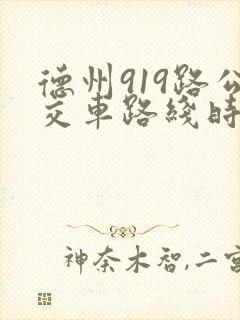 德州919路公
交車路綫時
神奈木智,二宮